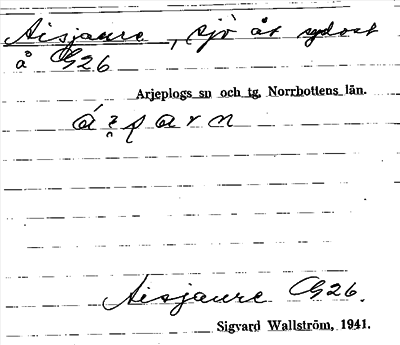 Aisjaure, sjö åt sydost
å G26
Arjeplogs sn och tg. Norrbottens län.
Aisjaure G26.
Sigvard Wallström, 1941.